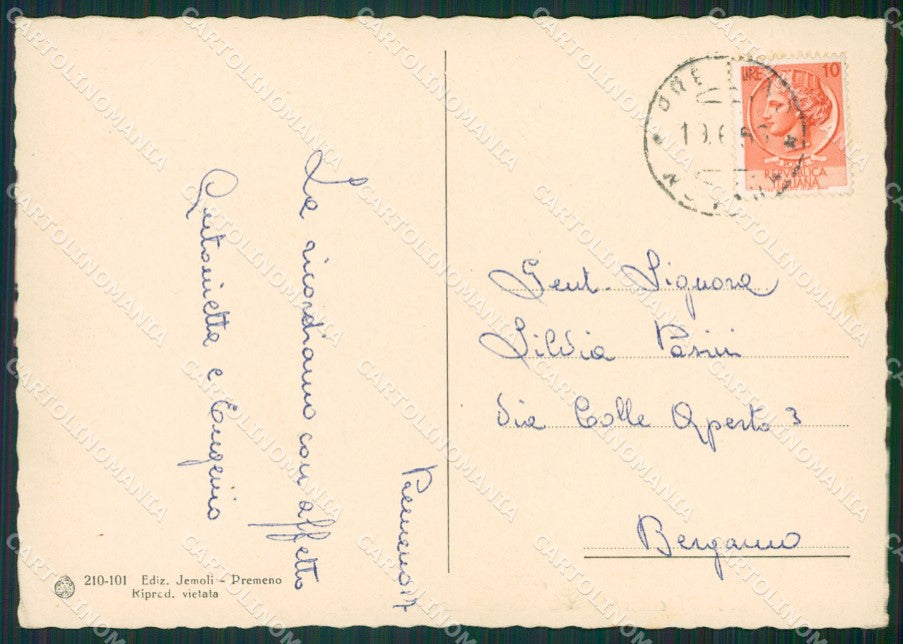 Le ricordiamo con affetto
Antonietta e Eugenio
LIRE 10
REPVBBLICA
ITALIANA
Gent. Signora
Silvia Pasini
Via Colle Aperto 3
Bergamo
210-101 Ediz. Jemoli - Premeno
Riprod. vietata
CARTOLINOMANIA